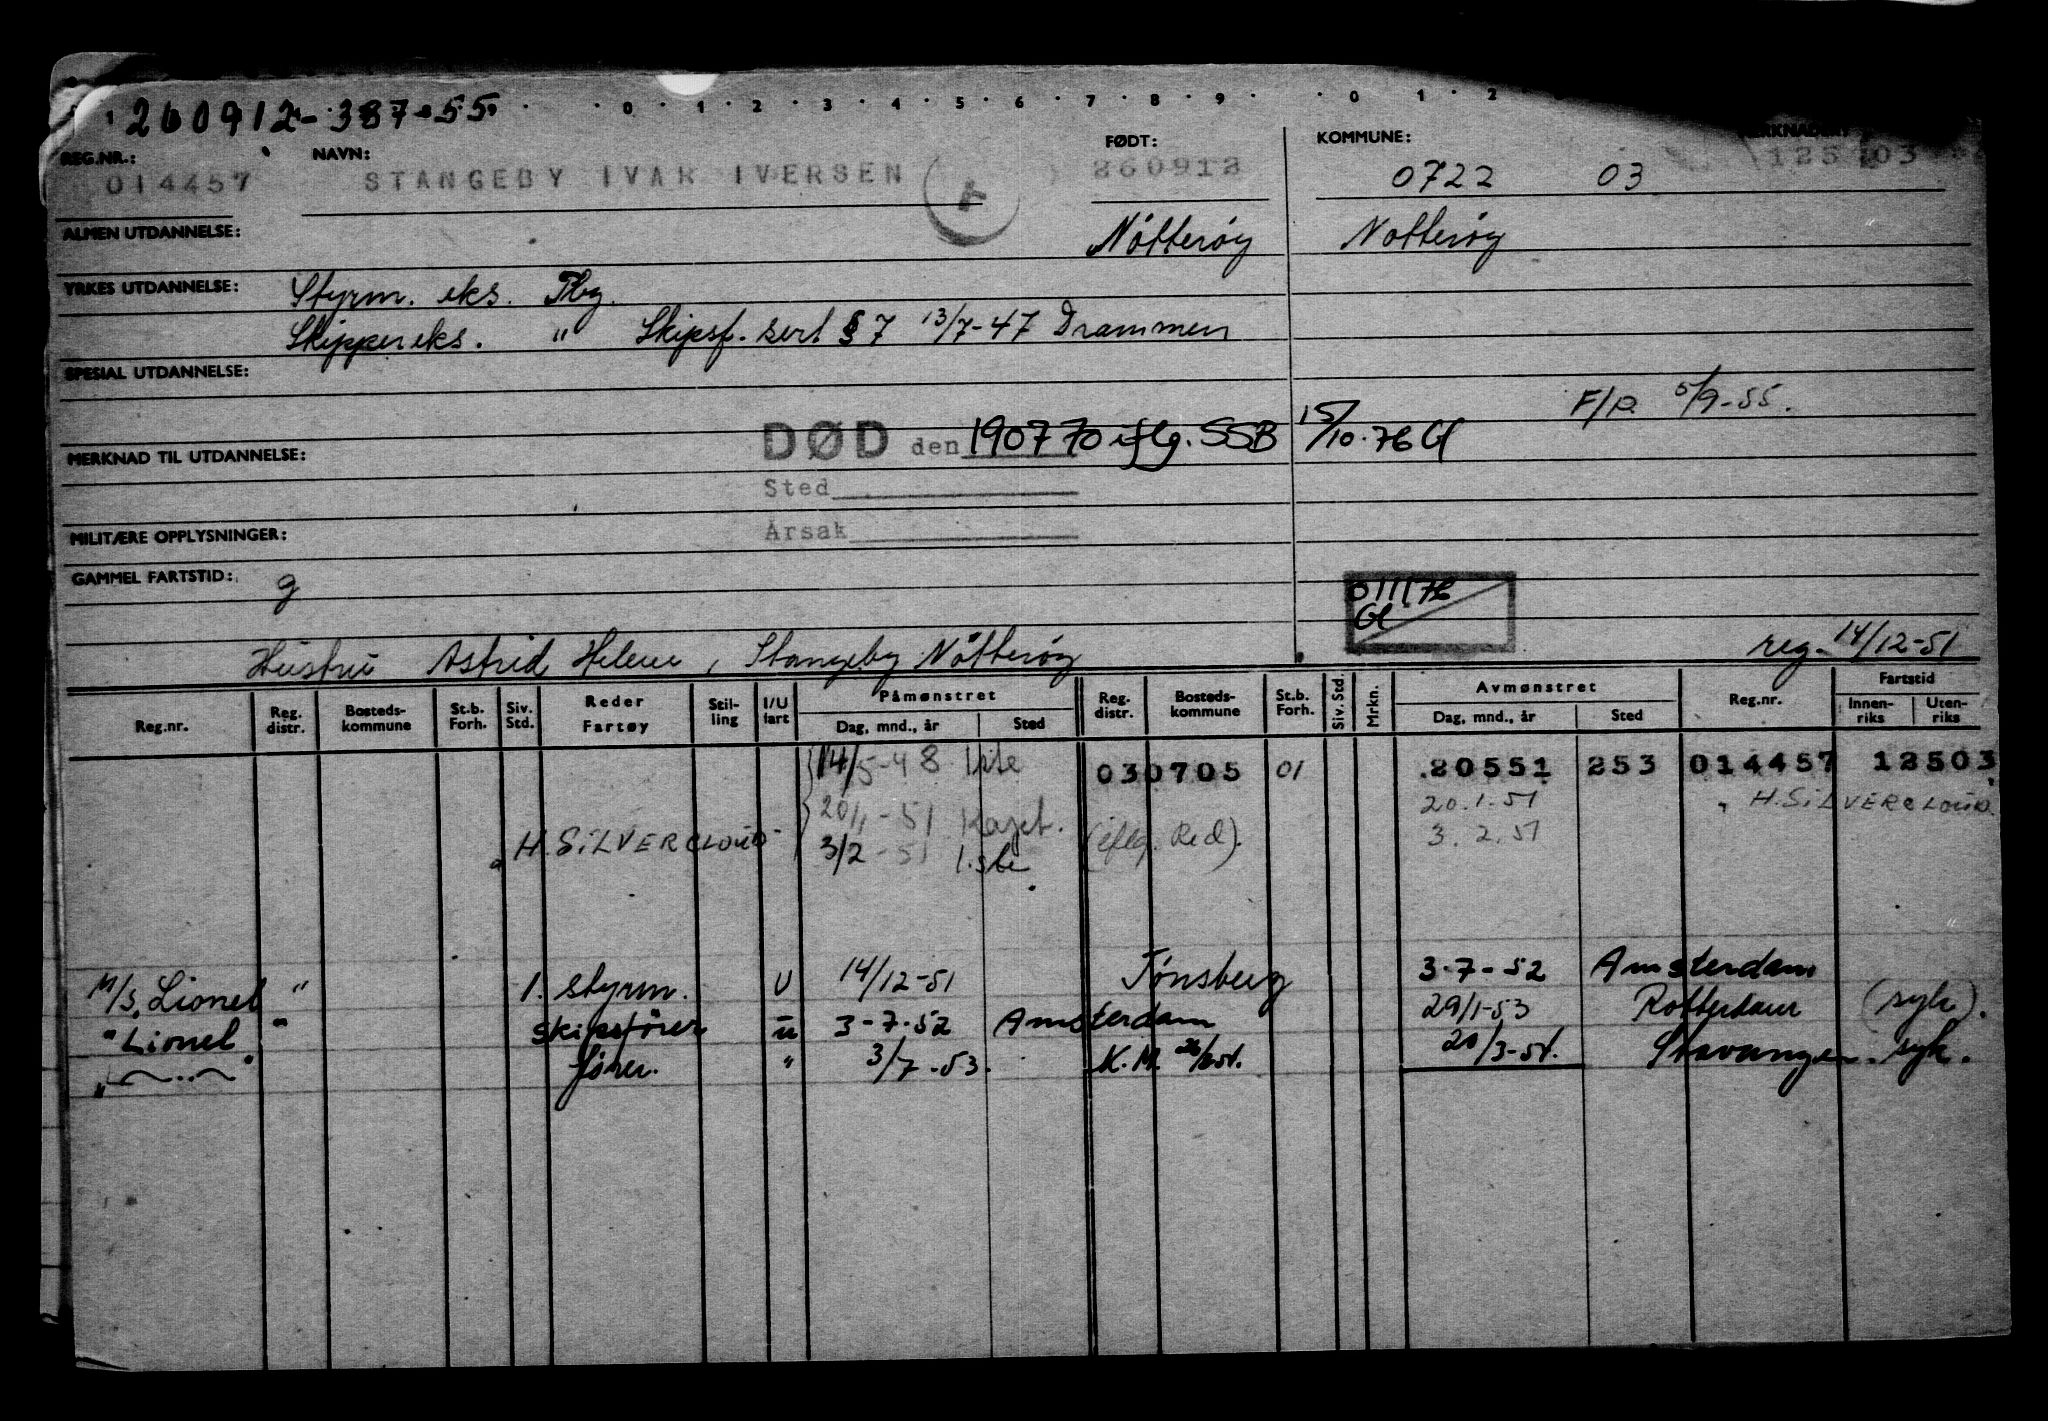 260912-387-55
0 1 2 3 4 5 6 7 8 9 0 1 2
REG.NR.: NAVN: FØDT: KOMMUNE:
014457 STANGEBY IVAR IVERSEN 260912 0722 03 125 03
ALMEN UTDANNELSE: Nötterøy Nötterøy
YRKES UTDANNELSE: Styrm. eks. Tbg.
Skippereks. " Skipsf. sert § 7 13/7-47 Drammen
SPESIAL UTDANNELSE:
F/R 5/9-55.
DØD den 190770 iflg. SSB 15/10.76 Gl
MERKNAD TIL UTDANNELSE:
Sted
MILITÆRE OPPLYSNINGER: Årsak
GAMMEL FARTSTID: g
011176
Gl
Hustru Astrid Helene, Stangeby Nötterøy reg. 14/12-51
Reg.nr. Reg. distr. Bosteds-kommune St.b. Forh. Siv. Std. Reder Fartøy Stil-ling I/U fart Påmønstret Dag, mnd., år Sted Reg. distr. Bosteds-kommune St.b. Forh. Siv. Std. Mrkn. Avmønstret Dag, mnd., år Sted Reg.nr. Fartstid Innen-riks Uten-riks
14/5-48 1ste 030705 01 20551 253 014457 12503
20/1-51 Kapt. 20.1.51 " H. SILVERCLOUD
" H. SILVERCLOUD 3/2-51 1.ste (iflg. Red). 3.2.51
M/S. Lionel " 1. styrm. U 14/12-51 Tønsberg 3-7-52 Amsterdam
" Lionel " skipsfører u 3-7-52 Amsterdam 29/1-53 Rotterdam (syk).
" " fører. " 3/7-53. K.M. 20/3-54. Stavanger. syk.